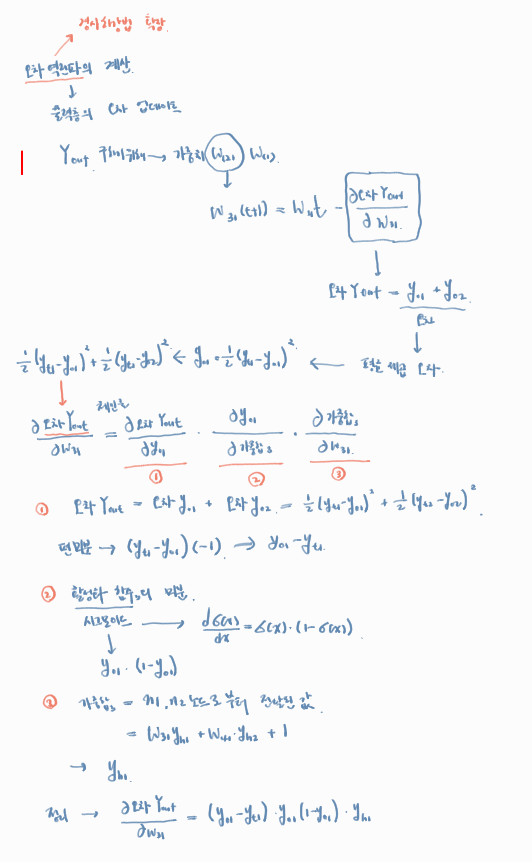 경사하강법 확장.
오차 역전파의 계산.
↓
출력층의 오차 업데이트
Yout 구하기위해 → 가중치 W(2) W(1)
↓
W₃₁(t+1) = W₃₁t - ∂오차 Yout / ∂W₃₁
↓
오차 Yout = y₀₁ + y₀₂
오차
↓
½(yt₁-y₀₁)² + ½(yt₂-y₀₂)² ← y₀₁ = ½(yt₁-y₀₁)² ← 평균 제곱 오차.
↓ 체인룰
∂오차 Yout / ∂W₃₁ = ∂오차 Yout / ∂y₀₁ · ∂y₀₁ / ∂가중합₃ · ∂가중합₃ / ∂W₃₁
① ② ③
① 오차 Yout = 오차 y₀₁ + 오차 y₀₂ = ½(yt₁-y₀₁)² + ½(yt₂-y₀₂)².
편미분 → (yt₁-y₀₁)(-1). → y₀₁-yt₁
② 활성화 함수의 미분.
시그모이드 → dσ(x)/dx = σ(x)·(1-σ(x))
↓
y₀₁·(1-y₀₁)
③ 가중합₃ = n1, n2 노드로 부터 전달된 값.
= W₃₁yh₁ + W₄₁·yh₂ + 1
→ yh₁.
정리 → ∂오차 Yout / ∂W₃₁ = (y₀₁-yt₁)·y₀₁(1-y₀₁)·yh₁